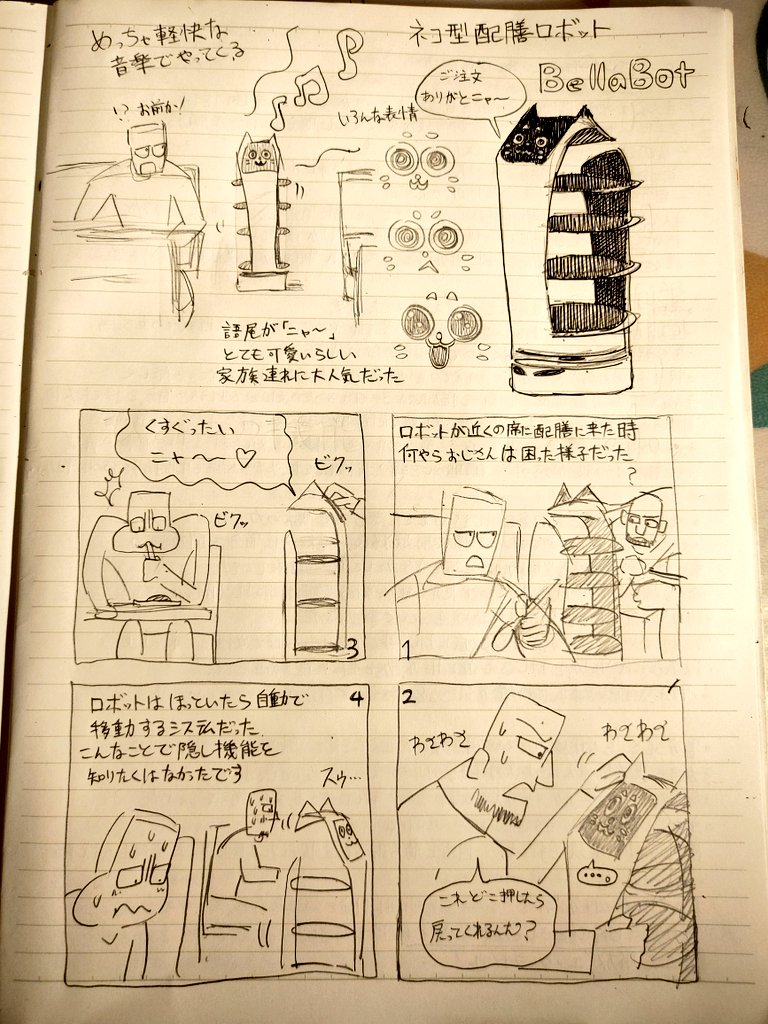 めっちゃ軽快な
音楽でやってくる
ネコ型配膳ロボット
BellaBot
ご注文
ありがとニャ〜
!? お前か!
いろんな表情
語尾が「ニャ〜」
とても可愛いらしい
家族連れに大人気だった
ロボットが近くの席に配膳に来た時
何やらおじさんは困った様子だった
?
1
2
わさわさ
わさわさ
・・・
これどこ押したら
戻ってくれるんだ?
くすぐったい
ニャ〜〜♡
ビクッ
ビクッ
3
ロボットはほっていたら自動で
4
移動するシステムだった
こんなことで隠し機能を
知りたくはなかったです
スゥ…